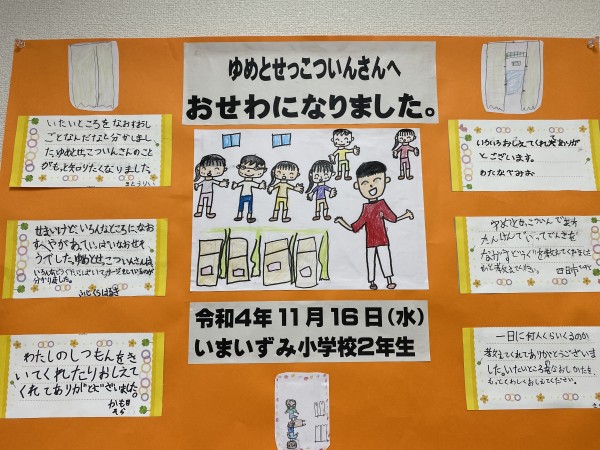 ゆめとせっこついんさんへ
おせわになりました。
いたいところをなおすおし
ごとなんだなと分かしまし
た。ゆめとせっこついんさんのこと
がもっと知りたくなりました。
せまいけど、いろんなところになお
すへやがあっていっぱいなおせそ
うでした。ゆめとせっこついんさんは、
いろんなどうぐ
マッサージをしているのが
分かりました。
わたしのしつもんをき
いてくれたりおしえて
くれてありがとうございました。
いろいろおしえてくれてありが
とうございます。
わたなべみお
ゆめとせっこついんで
たんけんで
もっと教えてください。
一日に何人くらいくるのか
教えてくれてありがとうございま
した。いたいところのなおしかたを
もっとくわしくおしえてください。
令和4年11月16日(水)
いまいずみ小学校2年生